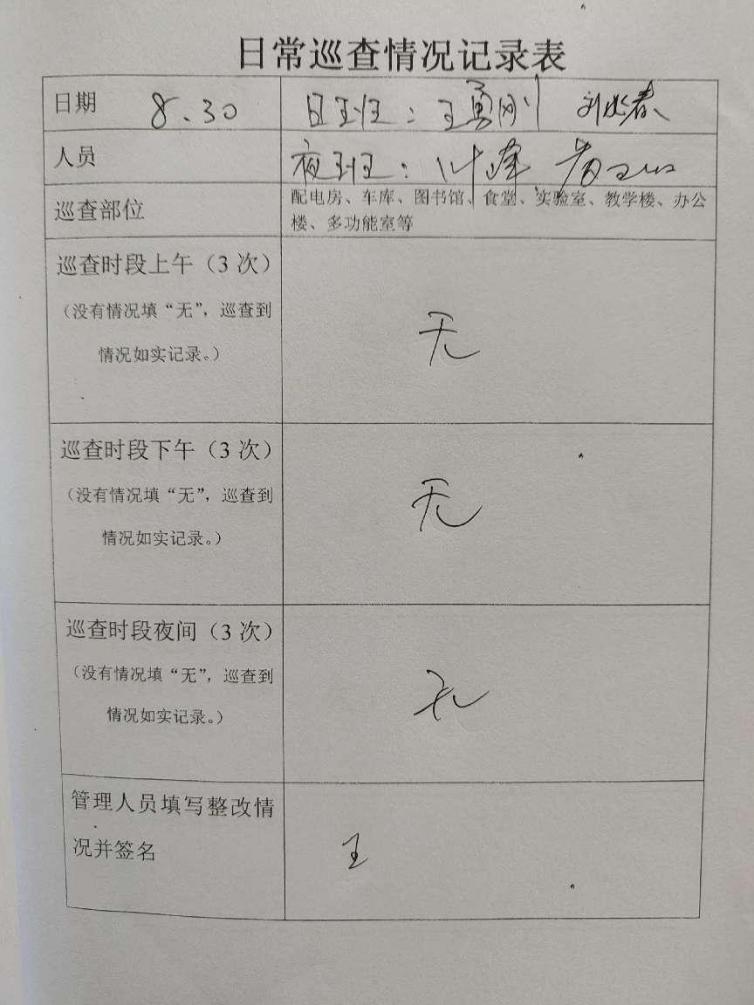 日常巡查情况记录表
日期 8.30 日班：王勇刚
人员 夜班：叶峰
巡查部位 配电房、车库、图书馆、食堂、实验室、教学楼、办公
楼、多功能室等
巡查时段上午（3 次）
（没有情况填“无”，巡查到
情况如实记录。）
无
巡查时段下午（3 次）
（没有情况填“无”，巡查到
情况如实记录。）
无
巡查时段夜间（3 次）
（没有情况填“无”，巡查到
情况如实记录。）
无
管理人员填写整改情
况并签名
王